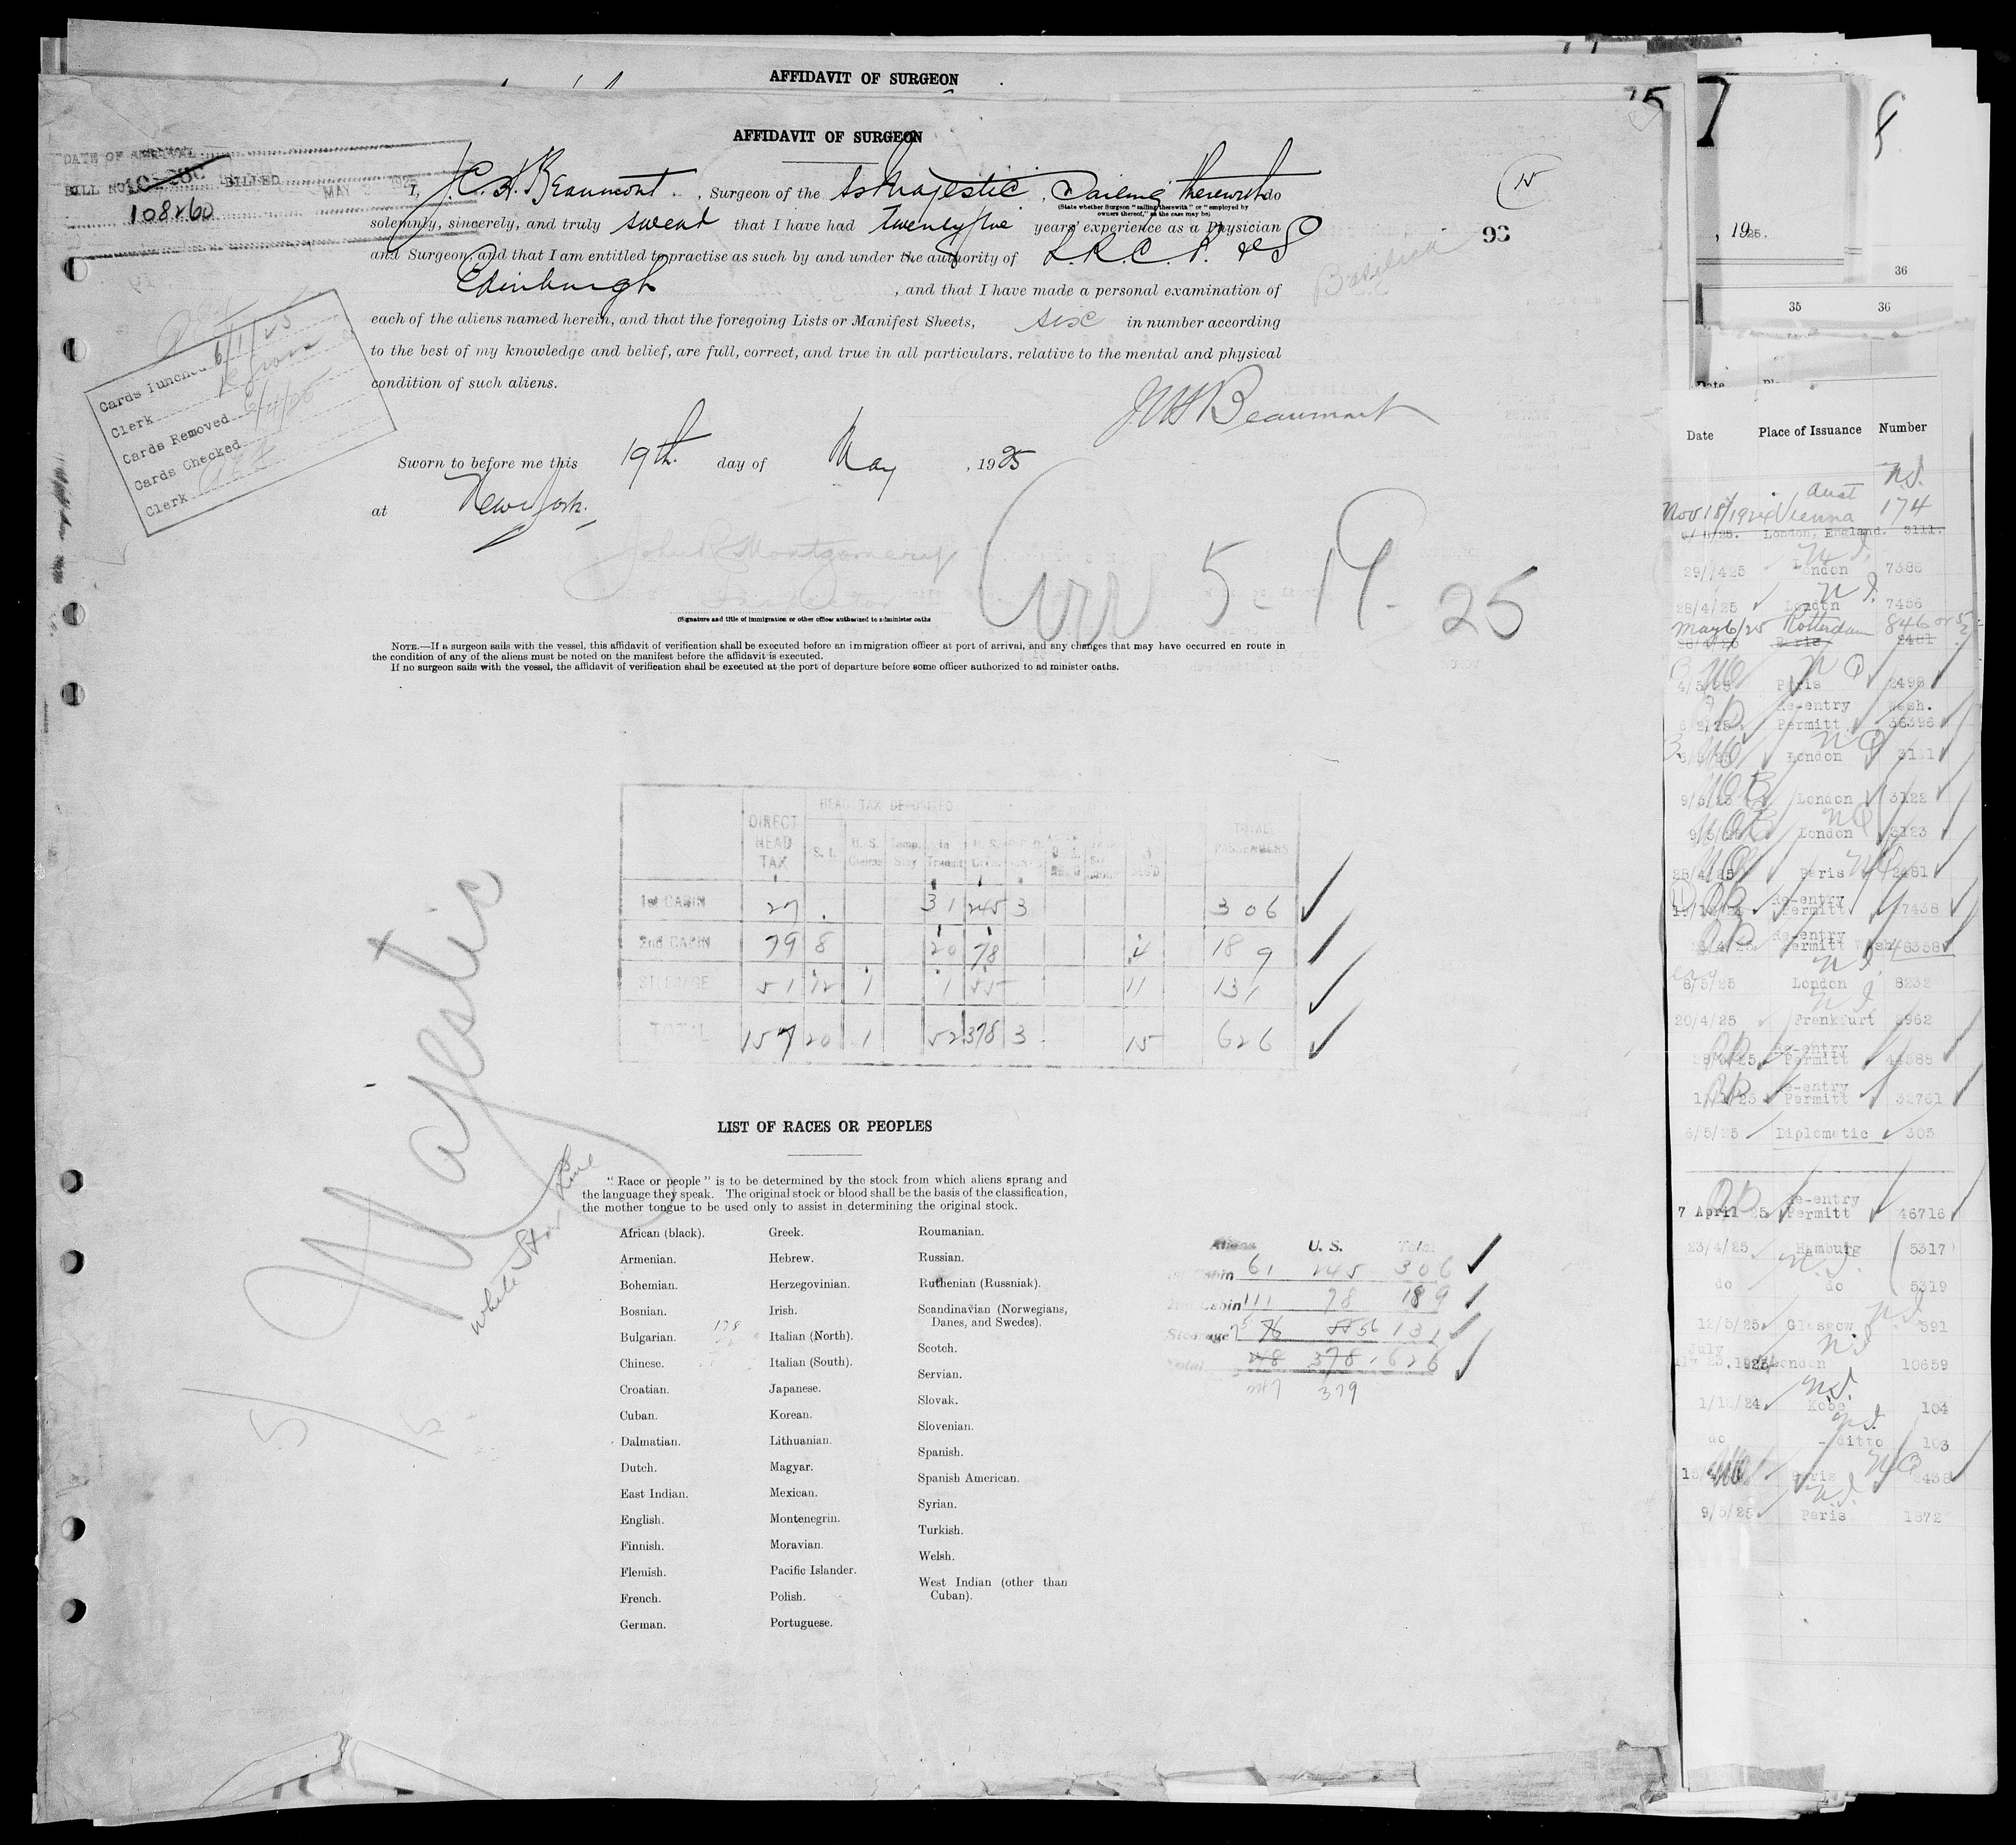 AFFIDAVIT OF SURGEON
AFFIDAVIT OF SURGEON
DATE OF ARRIVAL
BILL NO. BILLED MAY 1925
108260
I, J.C.H. Beaumont, Surgeon of the SS Majestic, Sailing therewith do
(State whether Surgeon "sailing therewith" or "employed by
owners thereof," as the case may be)
solemnly, sincerely, and truly swear that I have had twentyfive years' experience as a Physician
93
and Surgeon, and that I am entitled to practise as such by and under the authority of L.R.C.P. & S
Edinburgh, and that I have made a personal examination of
Basilica
each of the aliens named herein, and that the foregoing Lists or Manifest Sheets, six in number according
to the best of my knowledge and belief, are full, correct, and true in all particulars, relative to the mental and physical
condition of such aliens.
J.C.H. Beaumont
Cards Punched 6/1/25
Clerk
Cards Removed 6/4/25
Cards Checked
Clerk
Sworn to before me this 19th. day of May, 1925
at New York.
John R Montgomery
Inspector
(Signature and title of immigration or other officer authorized to administer oaths
5-19-25
NOTE.—If a surgeon sails with the vessel, this affidavit of verification shall be executed before an immigration officer at port of arrival, and any changes that may have occurred en route in
the condition of any of the aliens must be noted on the manifest before the affidavit is executed.
If no surgeon sails with the vessel, the affidavit of verification shall be executed at the port of departure before some officer authorized to ad minister oaths.
HEAD TAX DEPOSITED
DIRECT HEAD TAX S. I. U. S. Claims Temp. Stay In Transit U. S. TOTAL PASSENGERS
1st CABIN 27 31 245 3 306
2nd CABIN 79 8 20 78 4 189
STEERAGE 51 12 1 1 55 11 131
TOTAL 157 20 1 52 378 3 15 626
Majestic
White Star Line
LIST OF RACES OR PEOPLES
"Race or people" is to be determined by the stock from which aliens sprang and
the language they speak. The original stock or blood shall be the basis of the classification,
the mother tongue to be used only to assist in determining the original stock.
African (black).
Armenian.
Bohemian.
Bosnian.
Bulgarian.
Chinese.
Croatian.
Cuban.
Dalmatian.
Dutch.
East Indian.
English.
Finnish.
Flemish.
French.
German.
Greek.
Hebrew.
Herzegovinian.
Irish.
Italian (North).
Italian (South).
Japanese.
Korean.
Lithuanian.
Magyar.
Mexican.
Montenegrin.
Moravian.
Pacific Islander.
Polish.
Portuguese.
Roumanian.
Russian.
Ruthenian (Russniak).
Scandinavian (Norwegians,
Danes, and Swedes).
Scotch.
Servian.
Slovak.
Slovenian.
Spanish.
Spanish American.
Syrian.
Turkish.
Welsh.
West Indian (other than
Cuban).
Aliens U. S. Total
1st Cabin 61 245 306
2nd Cabin 111 78 189
Steerage 75 76 55 56 131
Total 248 378 626
247 379
, 1925.
36
35 36
Date Place of Issuance Number
Nov 18/1924 Vienna 174
London, England. 3111.
29/4/25 London 7386
28/4/25 London 7456
May 6/25 Rotterdam 846
Paris 2481
4/5/25 Paris 2498
Re-entry Wash.
Permitt 36396
London 3111
9/5/25 London 3122
9/5/25 London 3123
28/4/25 Paris 2481
Re-entry
Permitt 17438
Re-entry
Permitt Wash 48358
8/5/25 London 8232
20/4/25 Frankfurt 2962
Re-entry
Permitt 44588
Re-entry
Permitt 32761
6/5/25 Diplomatic 305
Re-entry
7 April 25 Permitt 46716
23/4/25 Hamburg 5317
do do 5319
12/5/25 Glasgow 591
July
London 10659
Kobe 104
do ditto 103
Paris 2438
9/5/25 Paris 1872